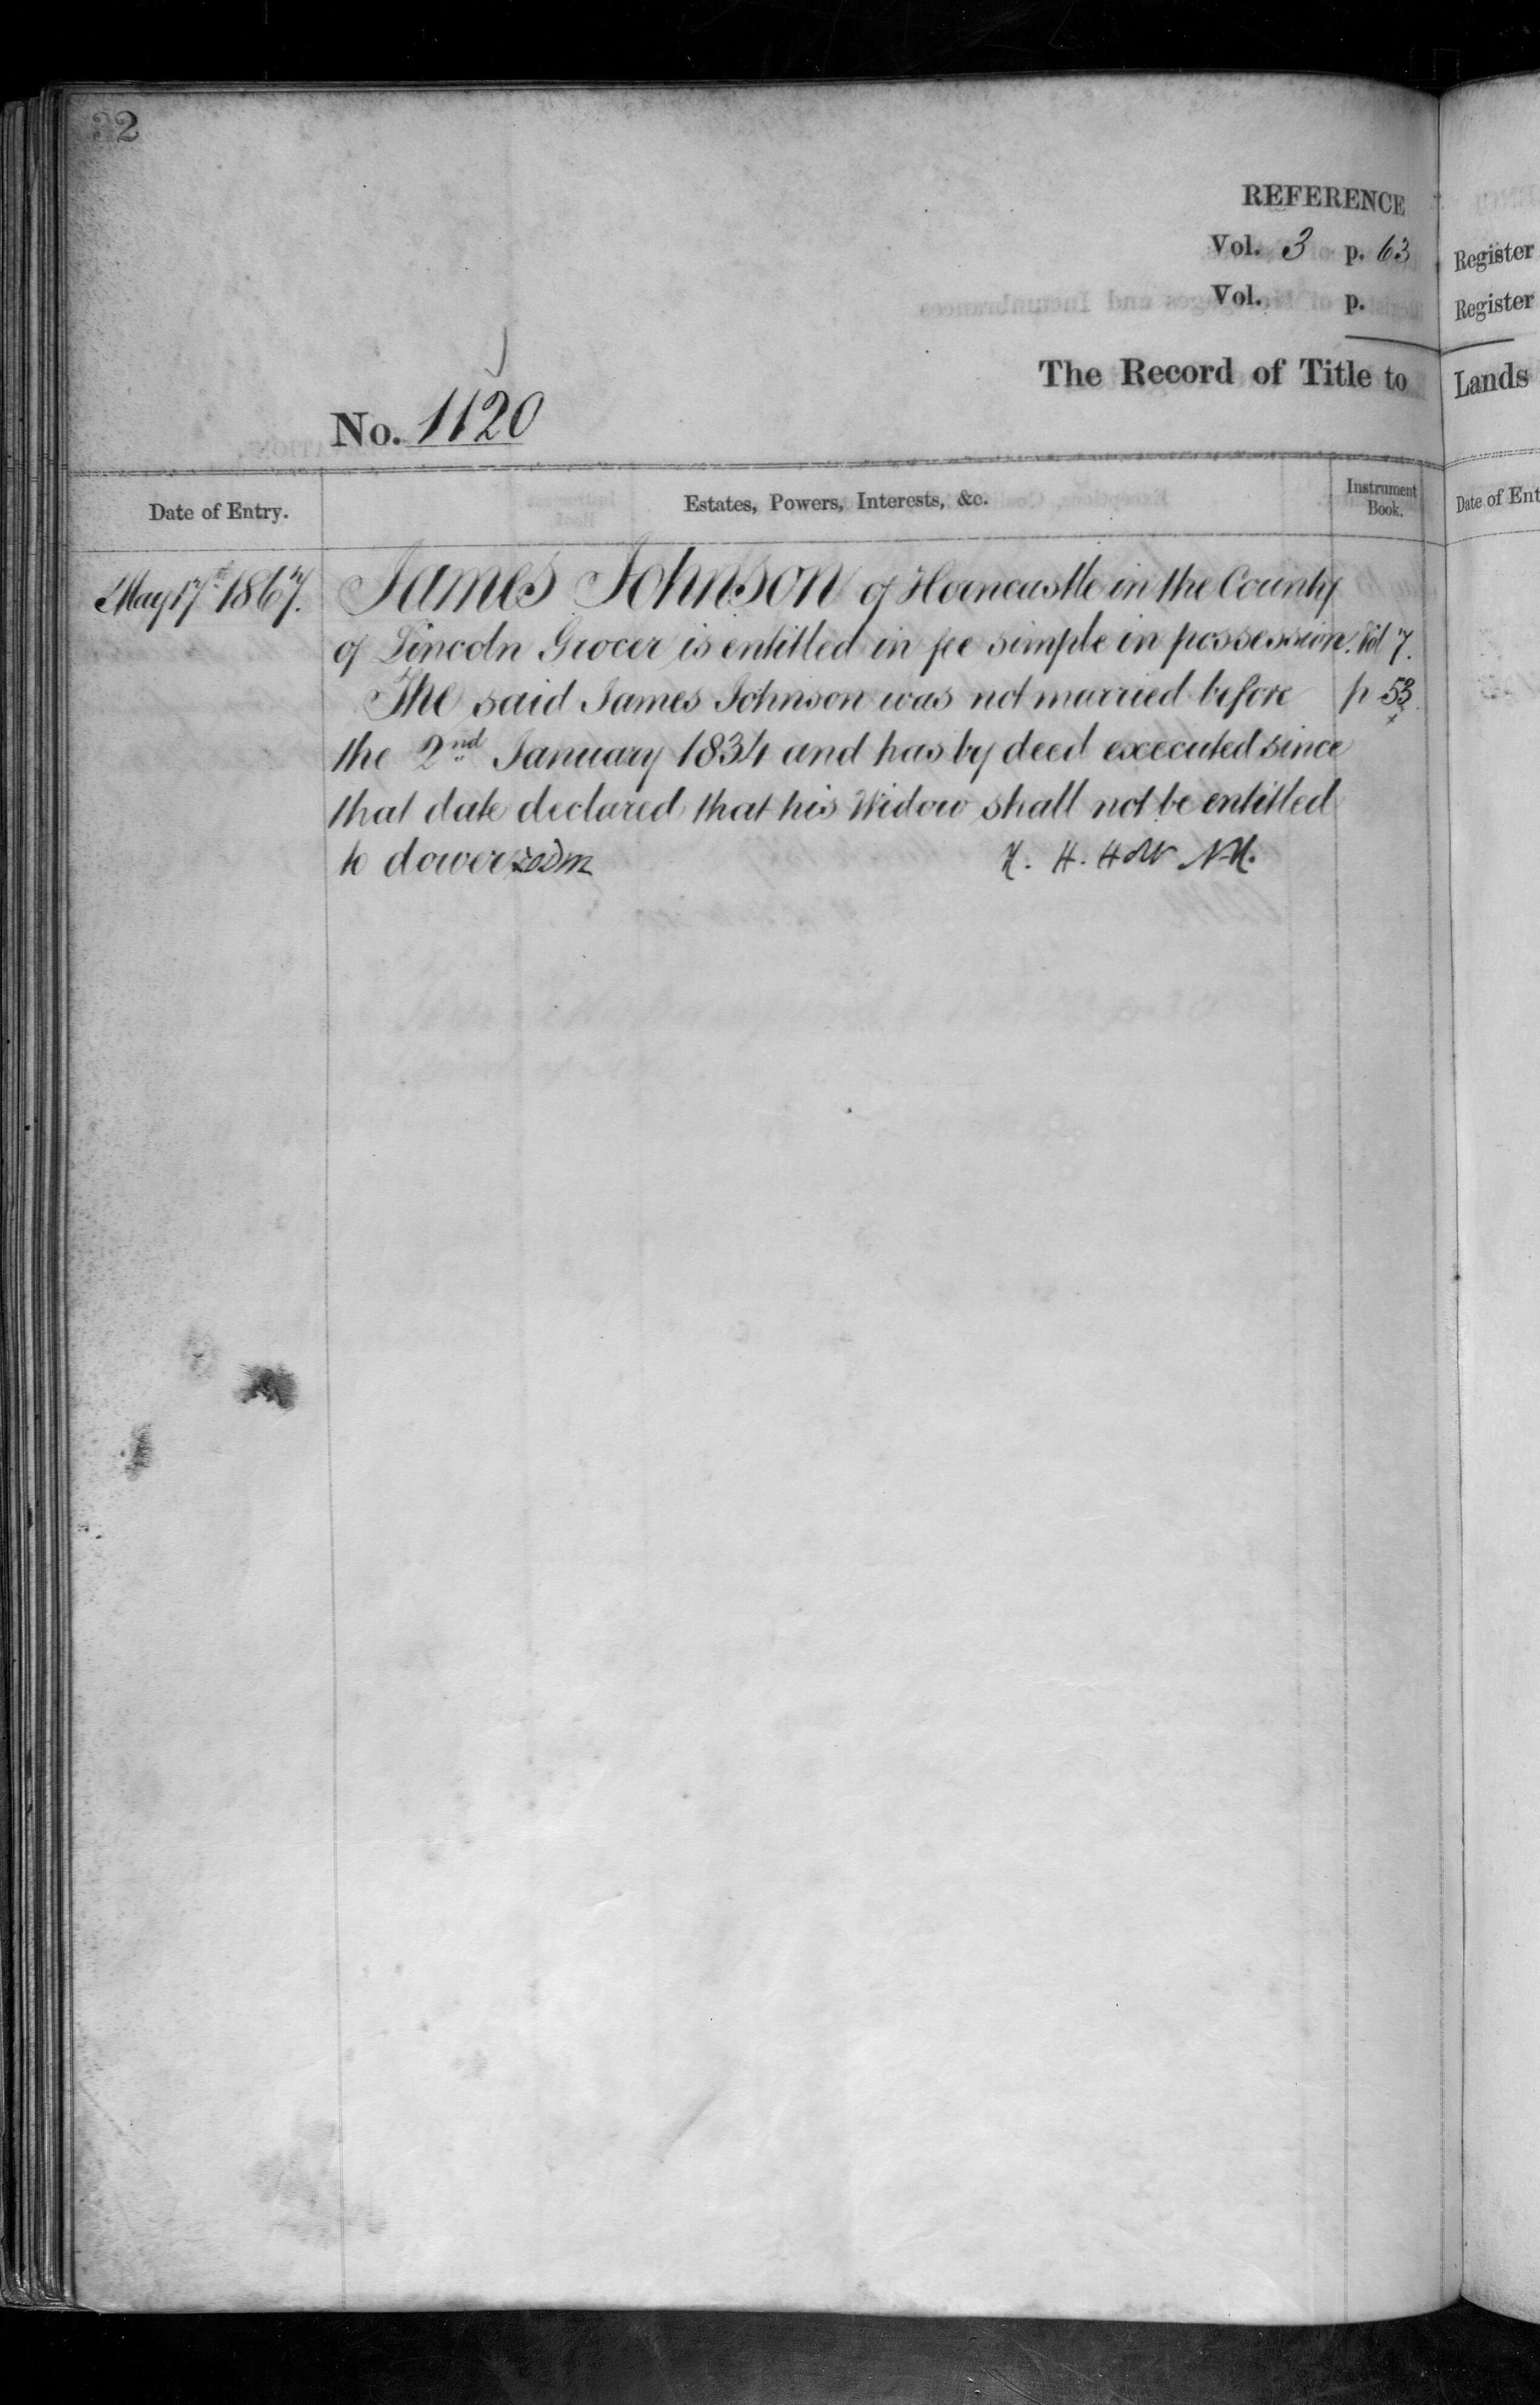 32
REFERENCE
Vol. 3 p. 63
Vol. p.
The Record of Title to
No. 1120
Date of Entry.
Estates, Powers, Interests, &c.
Instrument Book.
May 17th 1867.
James Johnson of Horncastle in the County
of Lincoln Grocer is entitled in fee simple in possession. Vol 7.
The said James Johnson was not married before p 53
the 2nd January 1834 and has by deed executed since
that date declared that his Widow shall not be entitled
to dower
Register
Register
Lands
Date of Ent